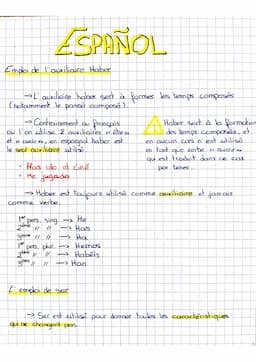 ESPAÑOL
Emploi de l'auxiliaire Haber
→ L'auxiliaire haber sert à former les temps composés
(notamment le passé composé).
→ Contrairement au français
où l'on utilise 2 auxiliaires « être »
et « avoir », en espagnol haber est
le seul auxiliaire utilisé.
• Has ido al ciné
• He jugado
Haber sert à la formation
des temps composés, et
en aucun cas il est utilisé
en tant que verbe « avoir »
qui est traduit dans ce cas
par tener.
→ Haber est toujours utilisé comme auxiliaire et jamais
comme verbe.
1ère pers. sing. → He
2ème // // → Has
3ème // // → Ha
1ère pers. plur. → Hemos
2ème // // → Habéis
3ème // // → Han
L'emploi de ser
→ Ser est utilisé pour donner toutes les caractéristiques
qui ne changent pas.